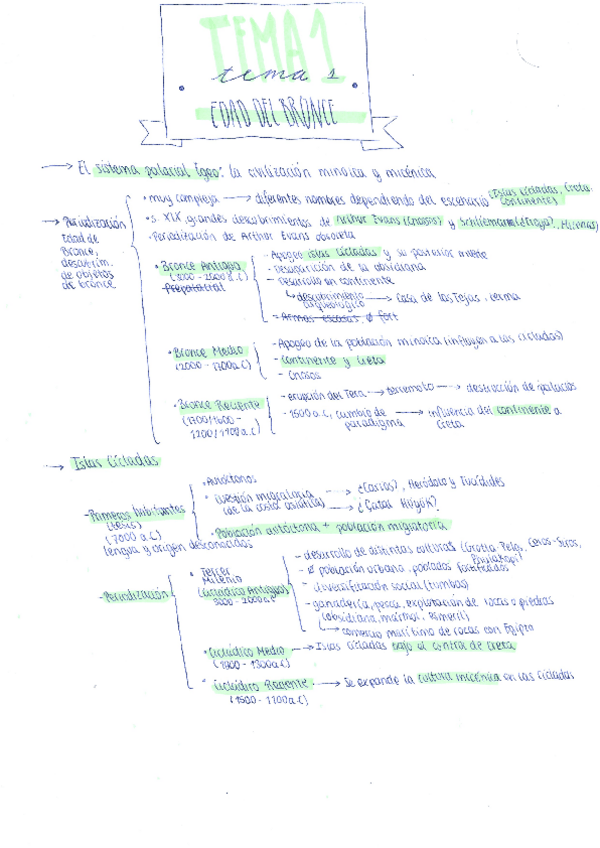 TEMA 1
tema 1
EDAD DEL BRONCE
→ El sistema palacial Egeo: la civilización minoica y micénica
→ Periodización
Edad de
Bronce,
descubrim.
de objetos
de bronce
· muy compleja → diferentes nombres dependiendo del escenario (Islas Cícladas, Creta,
continente)
· s. XIX grandes descubrimientos de Arthur Evans (Cnosos) y Schliemann (Troya?, Micenas)
· Periodización de Arthur Evans obsoleta
· Bronce Antiguo
(3000 - 2000 a.C)
Prepalacial
- Apogeo islas Cícladas y su posterior muerte
- Desaparición de la obsidiana
- Desarrollo en continente
↳ descubrimiento
arqueológico → Casa de las Tejas, Lerna
- Armas escasas, ∅ fort
· Bronce Medio
(2000 - 1700a.C)
- Apogeo de la población minoica (influyen a las cícladas)
- Continente y Creta
- Cnosos
· Bronce Reciente
(1700/1600 -
1200/1100a.C)
- erupción del Tera → terremoto → destrucción de palacios
- 1500 a.C, cambio de
paradigma → influencia del continente a
Creta
→ Islas Cícladas
- Primeros habitantes
(tesis)
(7000 a.C)
lengua y origen desconocidos
· Autóctonos
· Cuestión migratoria
(de la costa asiática)
→ ¿Carios?, Heródoto y Tucídides
→ ¿Çatal Hüyük?
- Población autóctona + población migratoria
- Periodización
· Tercer
Milenio
(Cicládico Antiguo)
3000 - 2000a.C
- desarrollo de distintas culturas (Grotta-Pelos, Ceros-Siros,
- ∅ población urbana, poblados fortificados
- diversificación social (tumbas)
- ganadería, pesca, explotación de rocas o piedras
(obsidiana, mármol, esmeril)
↳ comercio marítimo de rocas con Egipto
· Cicládico Medio
→ Islas Cícladas bajo el control de Creta
· Cicládico Reciente → Se expande la cultura micénica en las Cícladas
(1500 - 1100a.C)